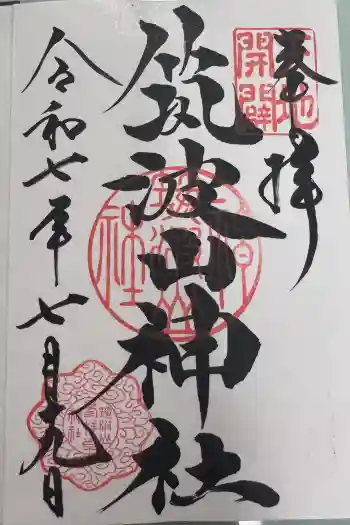 奉拝
天地開闢
筑波山神社
令和七年七月九日